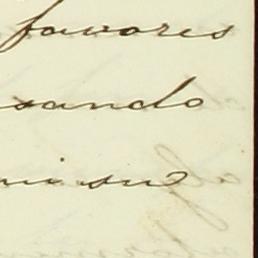 favores
sando
mi su